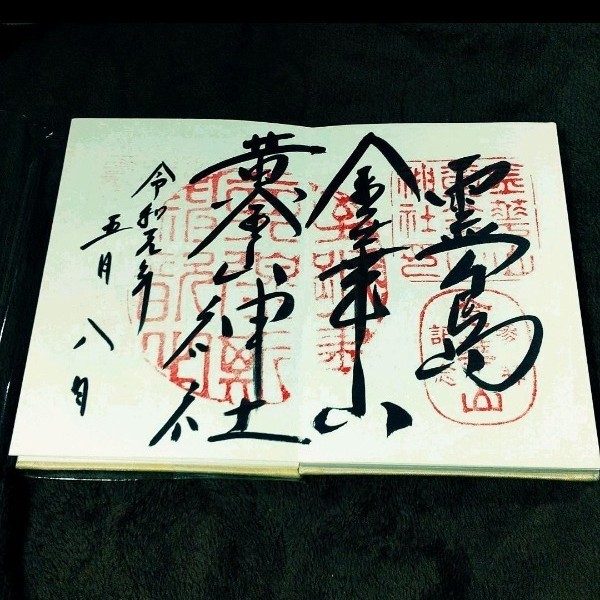 霊島
金華山
黄金山神社
令和元年
五月八日